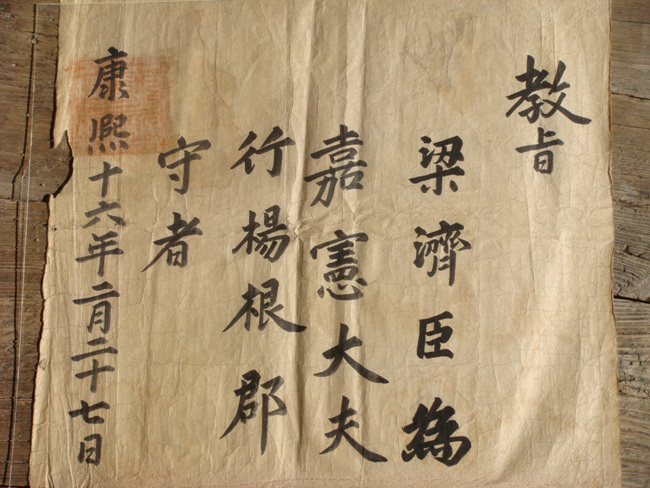 教旨
梁濟臣為
嘉憲大夫
行楊根郡
守者
康熙十六年二月二十七日